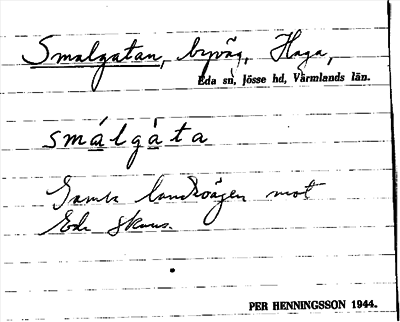 Smalgatan, byväg, Haga,
Eda sn, Jösse hd, Värmlands län.
smálgàta
Gamla landsvägen mot
Eda skans.
PER HENNINGSSON 1944.